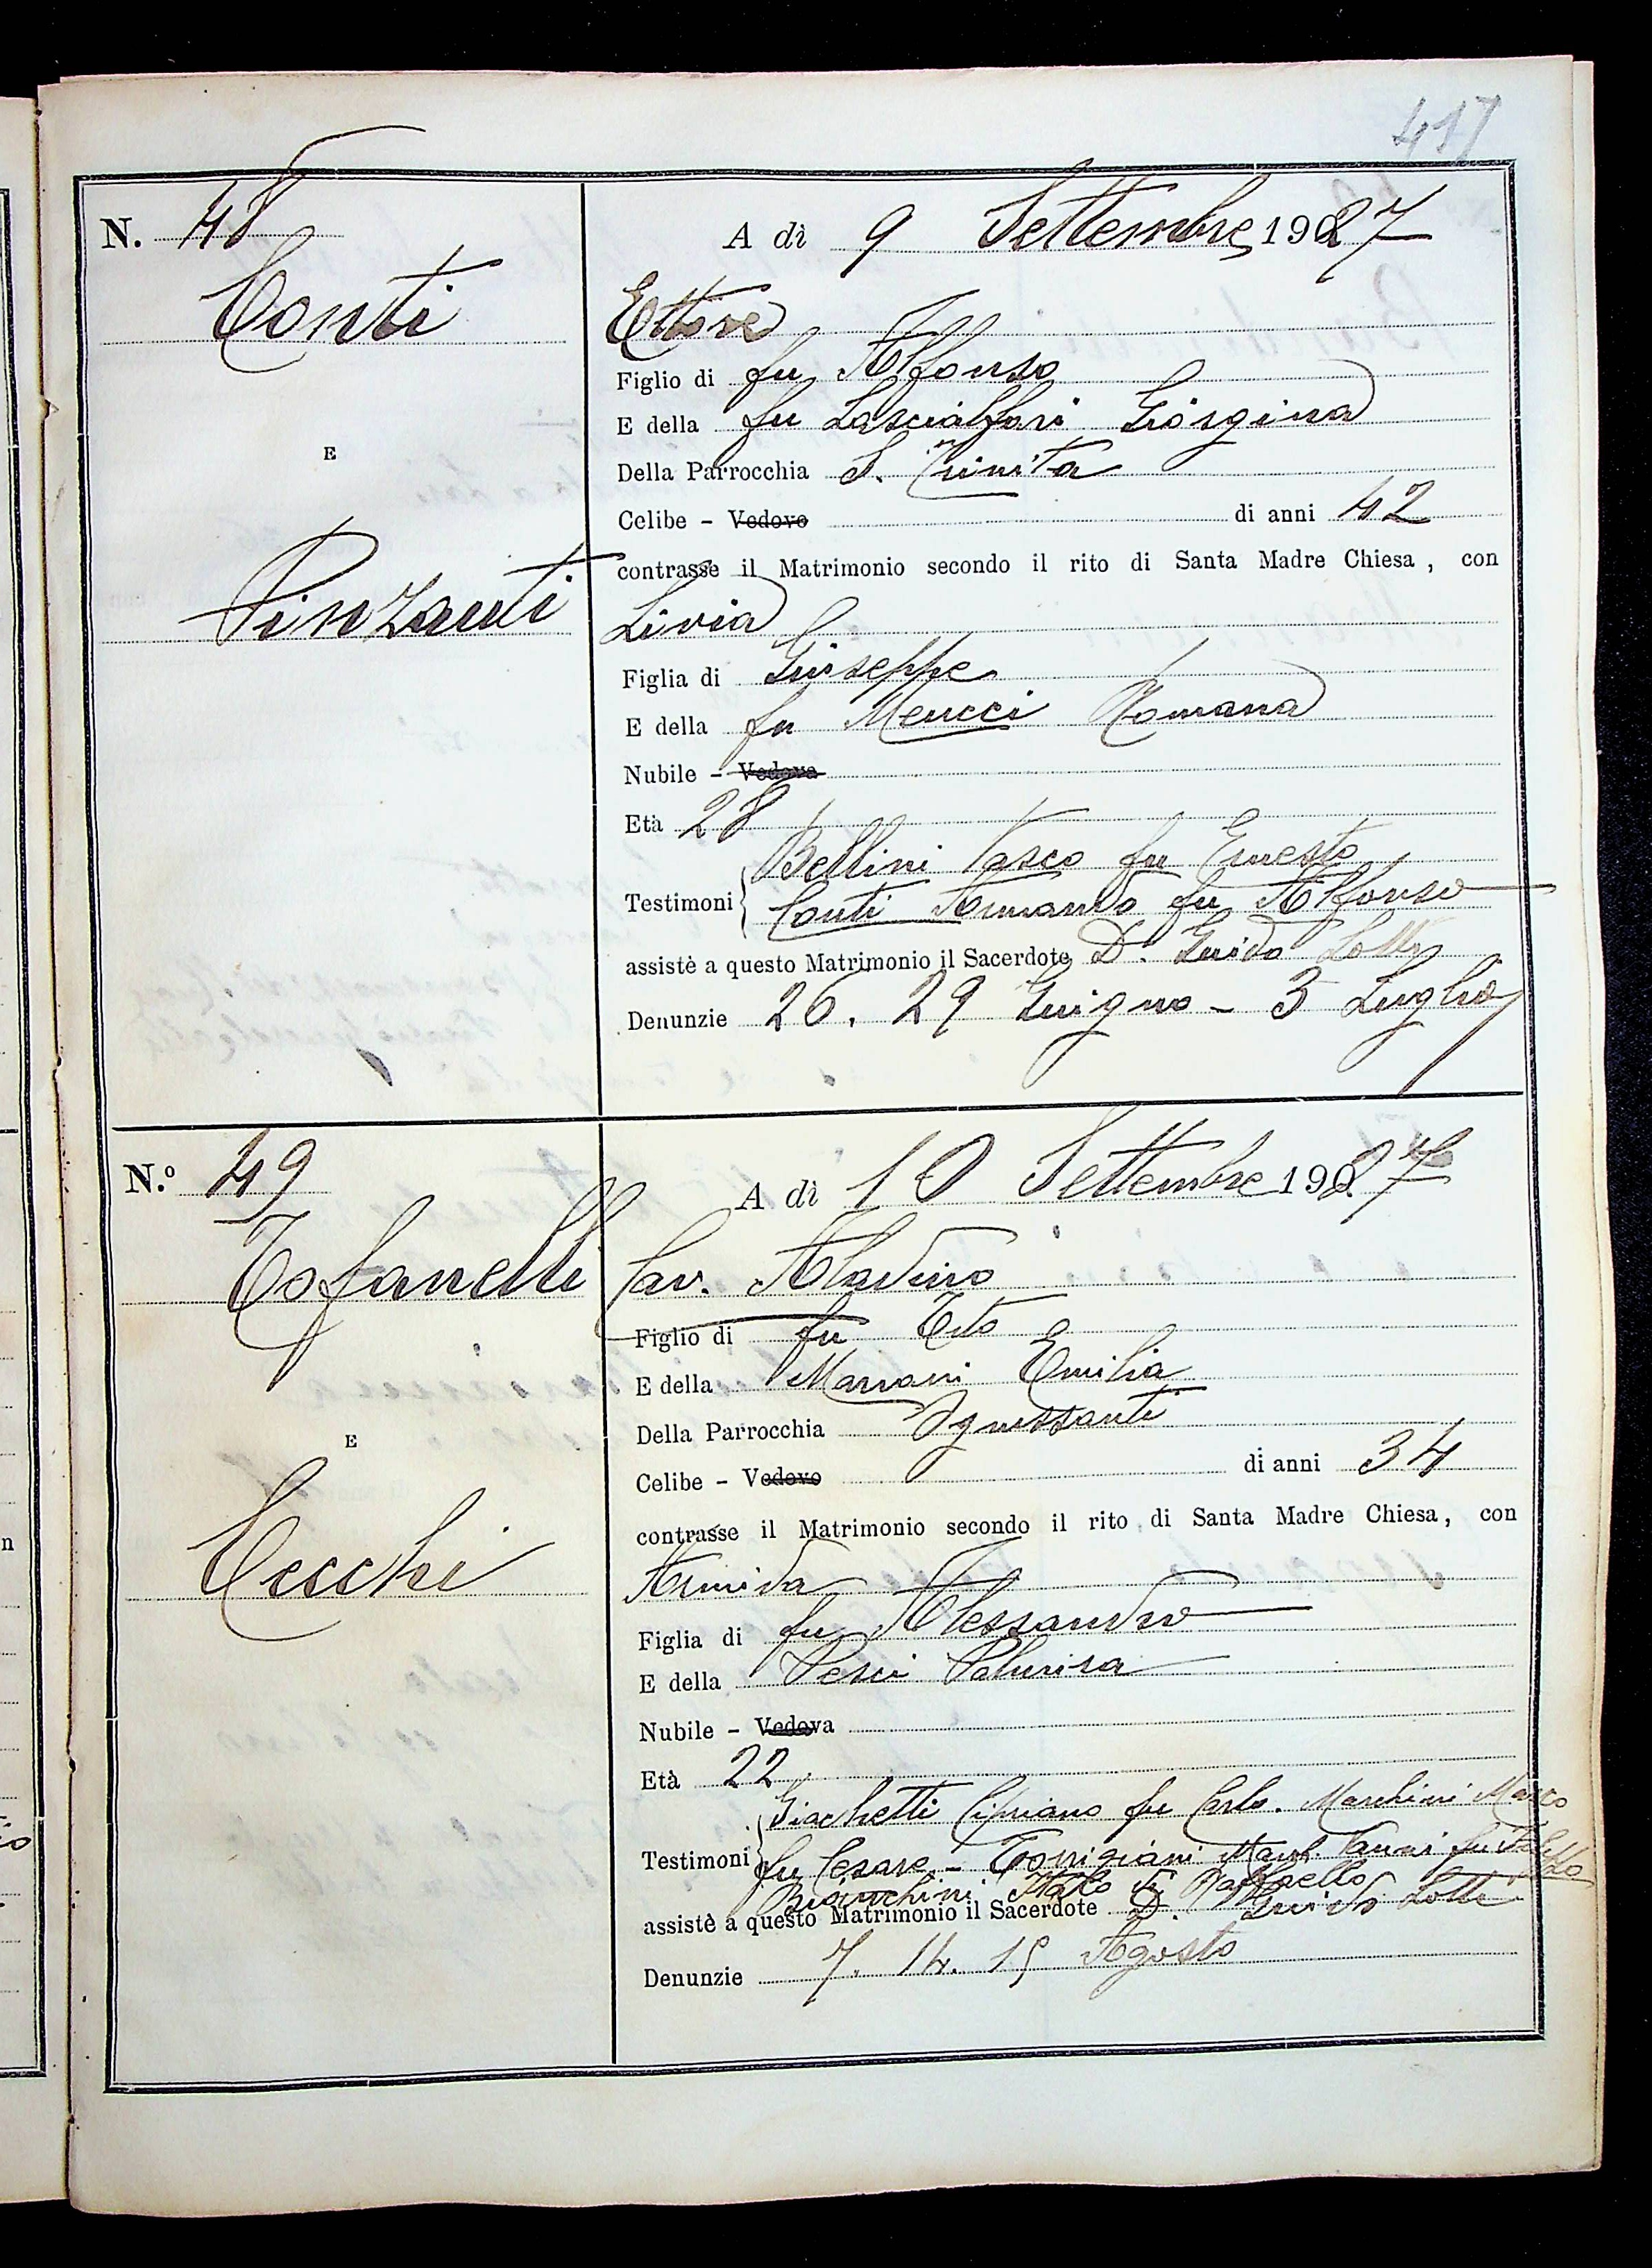 417
N. 48
A dì 9 Settembre 1927
Conti
Ettore
Figlio di fu Alfonso
E della fu Lascialfari Giorgina
E
Della Parrocchia S. Trinita
Celibe - Vedovo di anni 42
contrasse il Matrimonio secondo il rito di Santa Madre Chiesa, con
Pinzauti
Livia
Figlia di Giuseppe
E della fu Meucci Romana
Nubile - Vedova
Età 28
Bellini Vasco fu Ernesto
Testimoni Conti Armando fu Alfonso
assistè a questo Matrimonio il Sacerdote D. Guido Lotti
Denunzie 26. 29 Giugno - 3 Luglio
N.º 49
A dì 10 Settembre 1927
Tofanelli
Cav. Aladino
Figlio di fu Tito
E della Marrani Emilia
Della Parrocchia Ognissanti
E
Celibe - Vedovo di anni 34
contrasse il Matrimonio secondo il rito di Santa Madre Chiesa, con
Cecchi
Armida
Figlia di fu Alessandro
E della Pesci Palmira
Nubile - Vedova
Età 22
Giachetti Cipriano fu Carlo. Marchini Marco
Testimoni fu Cesare - Torrigiani March. Vanni fu
Bianchini Italo di Raffaello
assistè a questo Matrimonio il Sacerdote D. Guido Lotti
Denunzie 7. 14. 15 Agosto